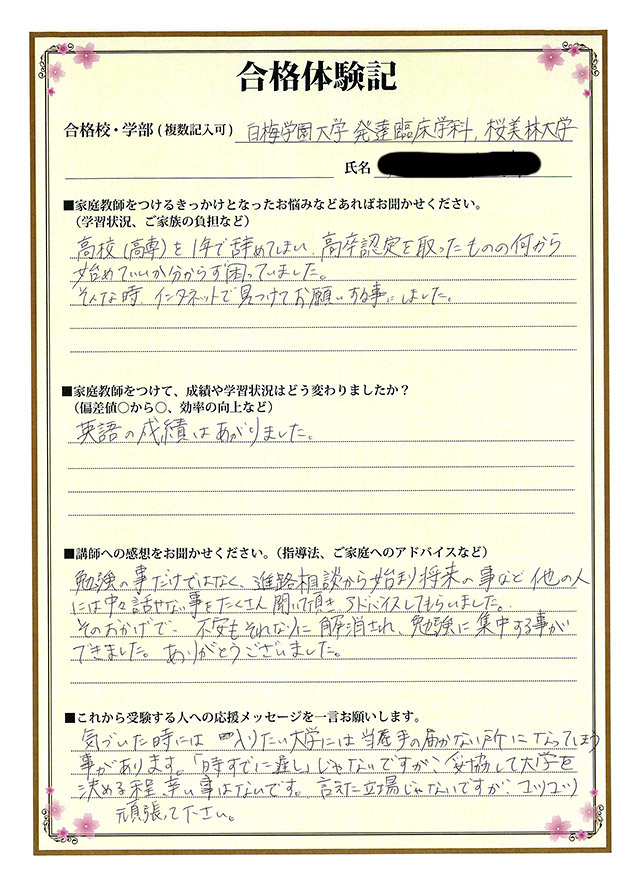 合格体験記
合格校・学部(複数記入可) 白梅学園大学 発達臨床学科, 桜美林大学
氏名
■家庭教師をつけるきっかけとなったお悩みなどあればお聞かせください。
(学習状況、ご家族の負担など)
高校(高専)を1年で辞めてしまい、高卒認定を取ったものの何から
始めていいか分からず困っていました。
そんな時、インタネットで見つけてお願いする事にしました。
■家庭教師をつけて、成績や学習状況はどう変わりましたか?
(偏差値○から○、効率の向上など)
英語の成績はあがりました。
■講師への感想をお聞かせください。(指導法、ご家庭へのアドバイスなど)
勉強の事だけではなく、進路相談から始まり将来の事など他の人
には中々話せない事をたくさん聞いて頂きアドバイスしてもらいました。
そのおかげで、不安もそれなりに解消され、勉強に集中する事が
できました。ありがとうございました。
■これから受験する人への応援メッセージを一言お願いします。
気づいた時には 入りたい大学には 手の届かない所になってしまう
事があります。「時すでに遅し」じゃないですが、妥協して大学を
決める程、辛い事はないです。言えた立場じゃないですが、コツコツ
頑張って下さい。